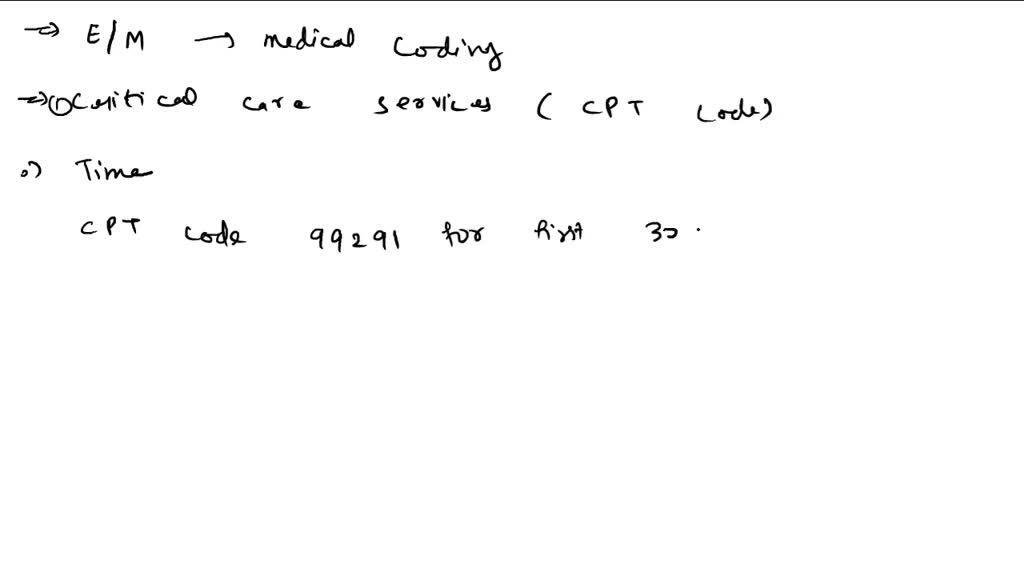 → E/M → medical coding
→ ① Critical care services ( CPT code)
•) Time
CPT code 99291 for first 30 .